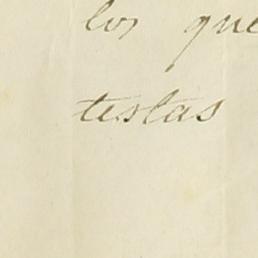 los que
testas